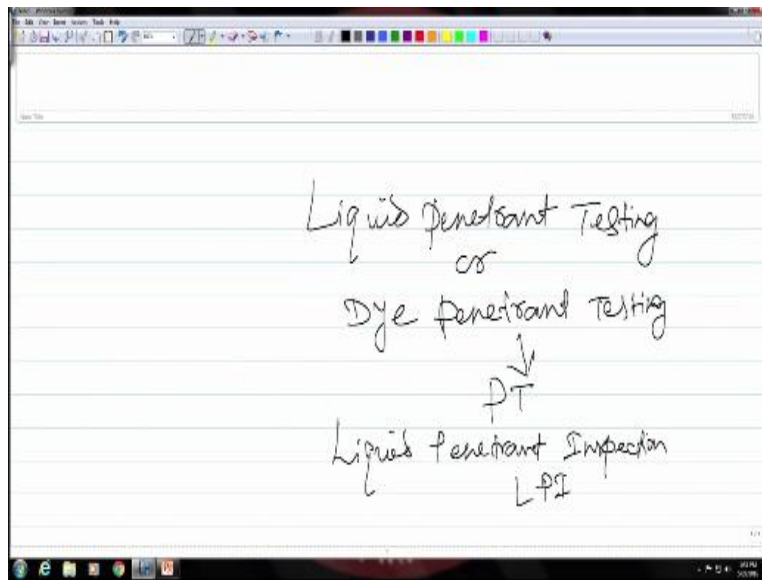 Liquid Penetrant Testing
or
Dye Penetrant Testing
PT
Liquid Penetrant Inspection
LPI